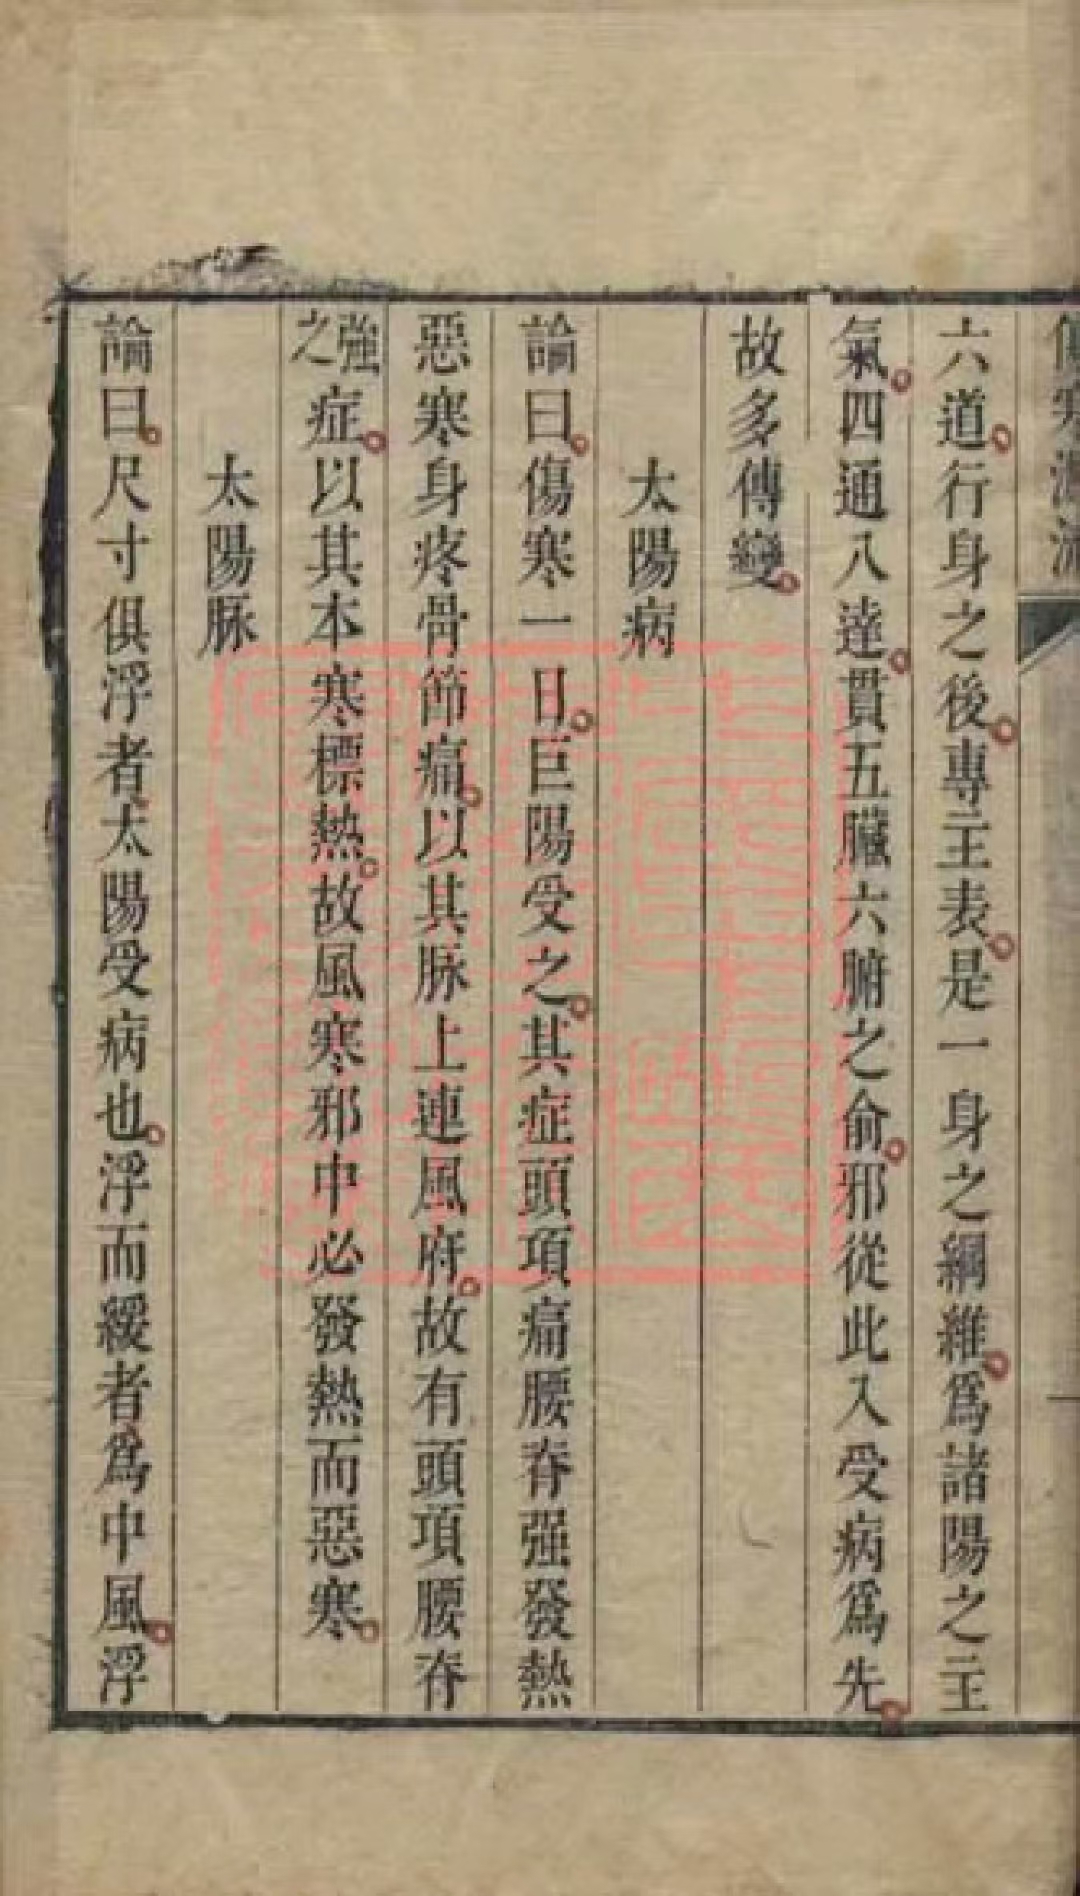 傷寒
六道行身之後專主表是一身之綱維爲諸陽之主
氣四通八達貫五臟六腑之俞邪從此入受病爲先
故多傳變
太陽病
論曰傷寒一日巨陽受之其症頭項痛腰脊强發熱
惡寒身疼骨節痛以其脉上連風府故有頭項腰脊
強之症以其本寒標熱故風寒邪中必發熱而惡寒
太陽脉
論曰尺寸俱浮者太陽受病也浮而緩者爲中風浮